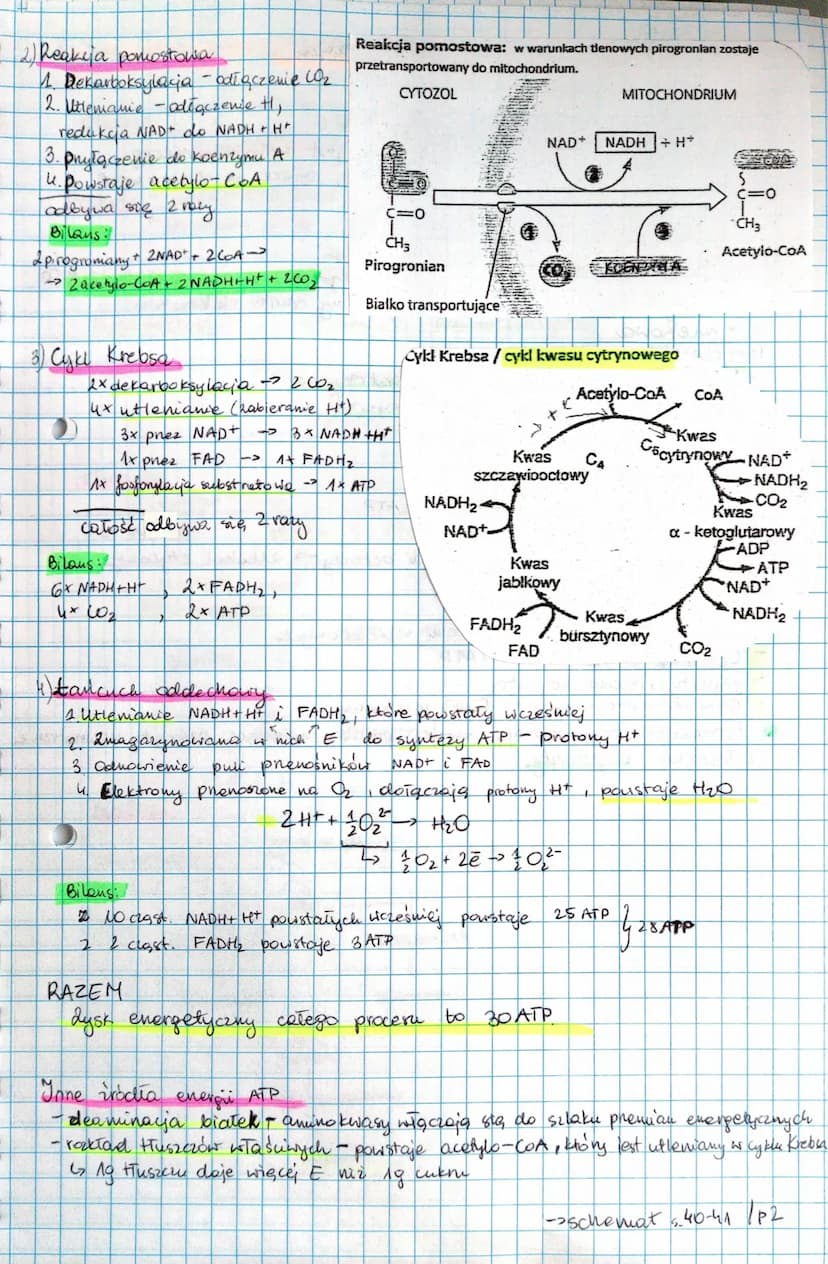 2) Reakcja pomostowa
1. Dekarboksylacja - odłączenie CO₂
2. Utlenianie - odłączenie H,
redukcja NAD⁺ do NADH + H⁺
3. Przyłączenie do koenzymu A
4. Powstaje acetylo-CoA
odbywa się 2 razy
Bilans:
2 pirogroniany + 2NAD⁺ + 2CoA →
→ 2 acetylo-CoA + 2 NADH+H⁺ + 2CO₂
Reakcja pomostowa: w warunkach tlenowych pirogronian zostaje
przetransportowany do mitochondrium.
CYTOZOL
MITOCHONDRIUM
NAD⁺ NADH + H⁺
2
C=O
C=O
CH₃
Pirogronian
1
CO₂
3
KOENZYM A
CoA
S
C=O
CH₃
Acetylo-CoA
Białko transportujące
3) Cykl Krebsa
2x dekarboksylacja → 2 CO₂
4x utlenianie (zabieranie H⁺)
3x przez NAD⁺ → 3x NADH+H⁺
1x przez FAD → 1x FADH₂
1x fosforylacja substratowa → 1x ATP
całość odbywa się 2 razy
Bilans:
6x NADH+H⁺ , 2x FADH₂,
4x CO₂ , 2x ATP
Cykl Krebsa / cykl kwasu cytrynowego
Acetylo-CoA CoA
Kwas
C₆ cytrynowy
NAD⁺
NADH₂
CO₂
Kwas
α - ketoglutarowy
ADP
ATP
NAD⁺
NADH₂
CO₂
Kwas
bursztynowy
FAD
FADH₂
Kwas
jabłkowy
NAD⁺
NADH₂
Kwas C₄
szczawiooctowy
4) Łańcuch oddechowy
1. Utlenianie NADH+H⁺ i FADH₂, które powstały wcześniej
2. Zmagazynowana w nich E do syntezy ATP - protony H⁺
3. Odnowienie puli przenośników NAD⁺ i FAD
4. Elektrony przenoszone na O₂, dołączają protony H⁺, powstaje H₂O
2H⁺ + ½O₂²⁻ → H₂O
↳ ½O₂ + 2ē → ½O₂²⁻
Bilans:
z 10 cząst. NADH+H⁺ powstałych wcześniej powstaje 25 ATP
z 2 cząst. FADH₂ powstaje 3 ATP
} 28 ATP
RAZEM
Zysk energetyczny całego procesu to 30 ATP.
Inne źródła energii ATP
- deaminacja białek - aminokwasy włączają się do szlaku przemian energetycznych
- rozkład tłuszczów właściwych - powstaje acetylo-CoA, który jest utleniany w cyklu Krebsa
↳ 1g tłuszczu daje więcej E niż 1g cukru
→ schemat s. 40-41 /p2